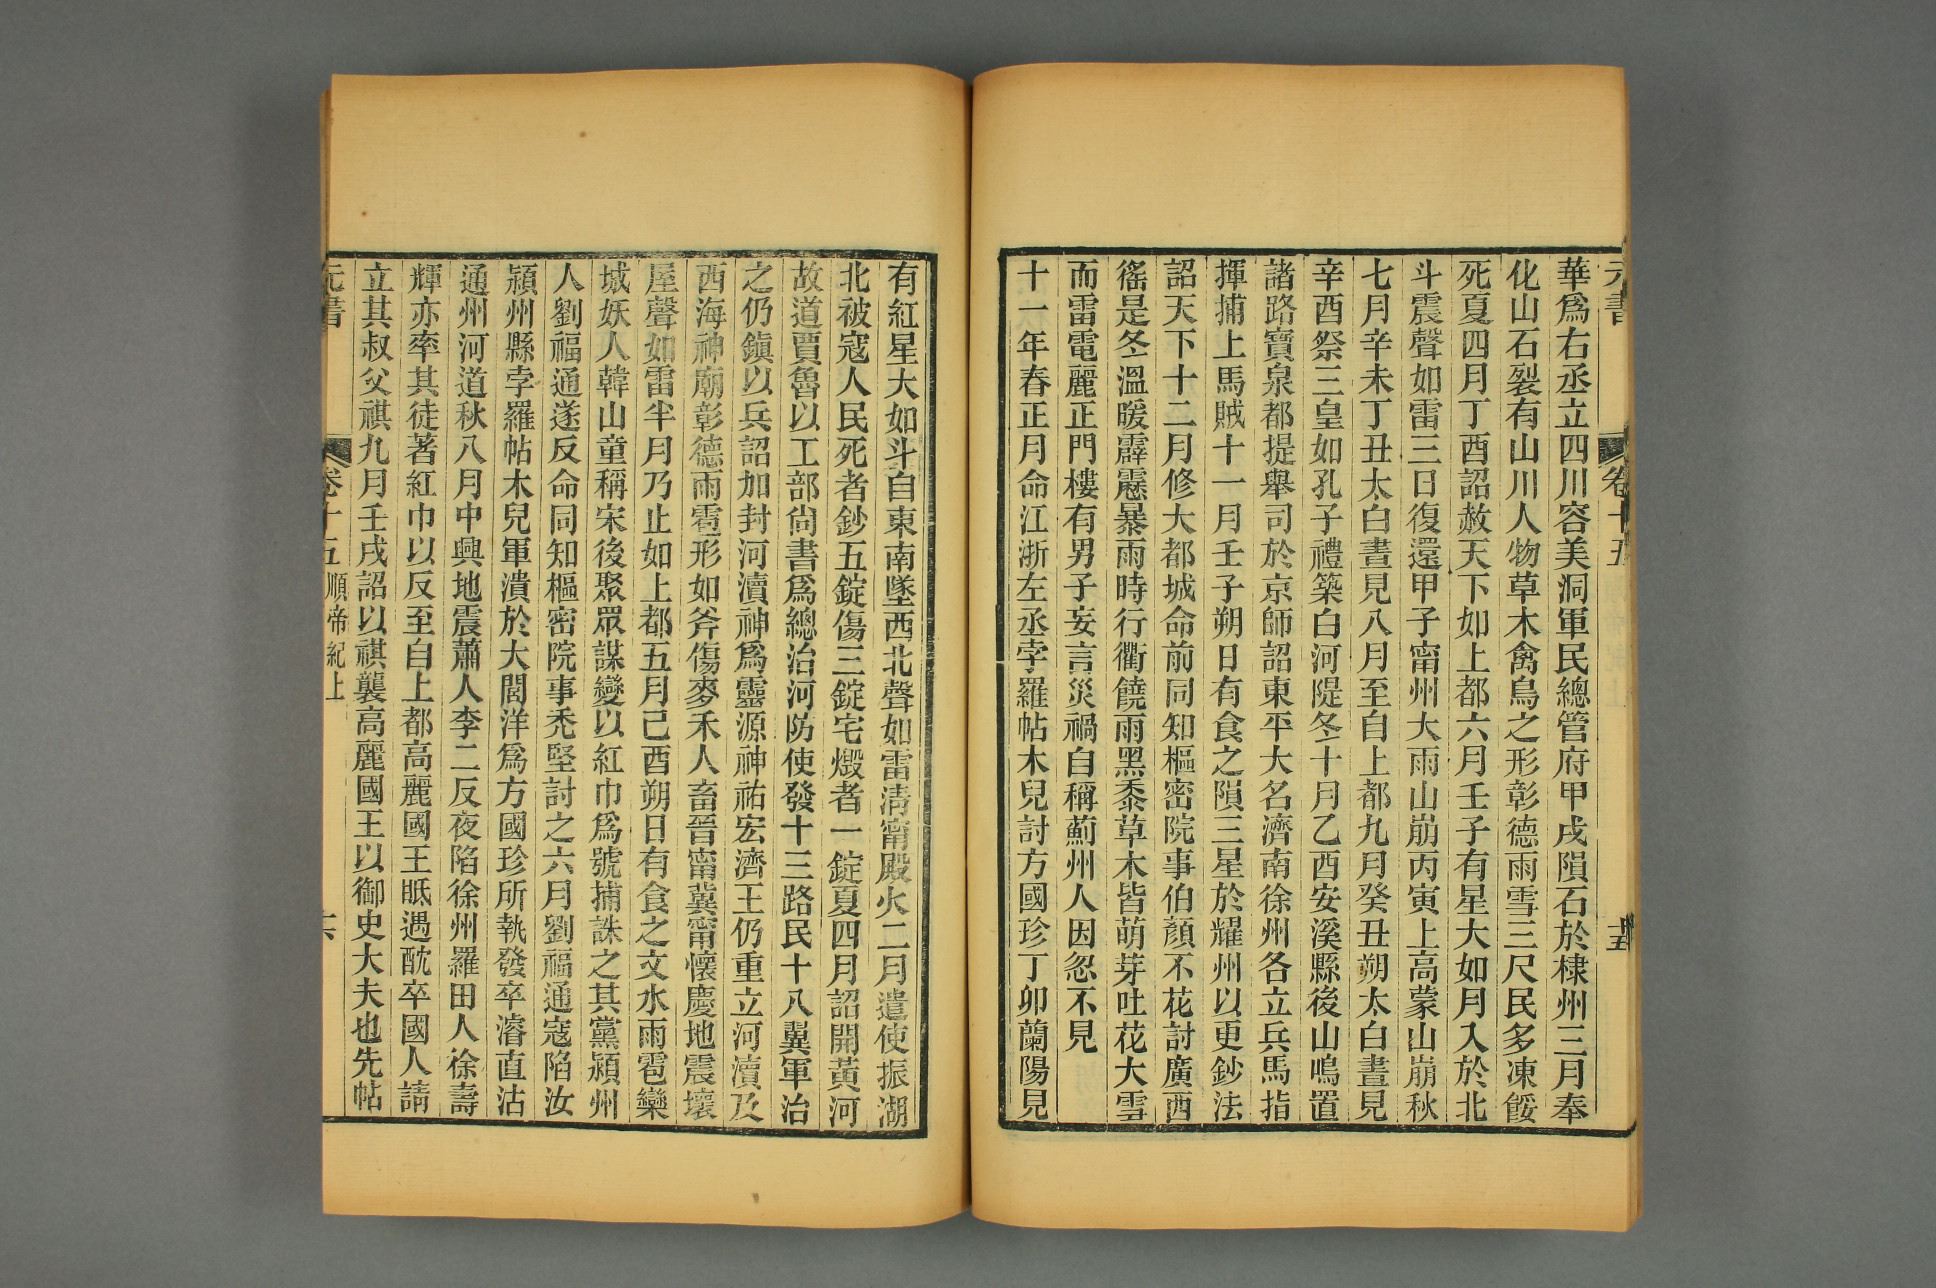 元書
卷十五
十五
華爲右丞立四川容美洞軍民總管府甲戌隕石於棣州三月奉
化山石裂有山川人物草木禽鳥之形彰德雨雪三尺民多凍餒
死夏四月丁酉詔赦天下如上都六月壬子有星大如月入於北
斗震聲如雷三日復還甲子甯州大雨山崩丙寅上高蒙山崩秋
七月辛未丁丑太白晝見八月至自上都九月癸丑朔太白晝見
辛酉祭三皇如孔子禮築白河隄冬十月乙酉安溪縣後山鳴置
諸路寶泉都提舉司於京師詔東平大名濟南徐州各立兵馬指
揮捕上馬賊十一月壬子朔日有食之隕三星於耀州以更鈔法
詔天下十二月修大都城命前同知樞密院事伯顏不花討廣西
徭是冬溫暖霹靂暴雨時行衢饒雨黑黍草木皆萌芽吐花大雪
而雷電麗正門樓有男子妄言災禍自稱薊州人因忽不見
十一年春正月命江浙左丞孛羅帖木兒討方國珍丁卯蘭陽見
有紅星大如斗自東南墜西北聲如雷淸甯殿火二月遣使振湖
北被寇人民死者鈔五錠傷三錠宅燬者一錠夏四月詔開黃河
故道賈魯以工部尙書爲總治河防使發十三路民十八翼軍治
之仍鎭以兵詔加封河瀆神爲靈源神祐宏濟王仍重立河瀆及
西海神廟彰德雨雹形如斧傷麥禾人畜晉甯冀甯懷慶地震壞
屋聲如雷半月乃止如上都五月己酉朔日有食之文水雨雹欒
城妖人韓山童稱宋後聚眾謀變以紅巾爲號捕誅之其黨潁州
人劉福通遂反命同知樞密院事禿堅討之六月劉福通寇陷汝
潁州縣孛羅帖木兒軍潰於大閭洋爲方國珍所執發卒濬直沽
通州河道秋八月中興地震蕭人李二反夜陷徐州羅田人徐壽
輝亦率其徒著紅巾以反至自上都高麗國王眡遇酖卒國人請
立其叔父祺九月壬戌詔以祺襲高麗國王以御史大夫也先帖
元書
卷十五順帝紀上
十六